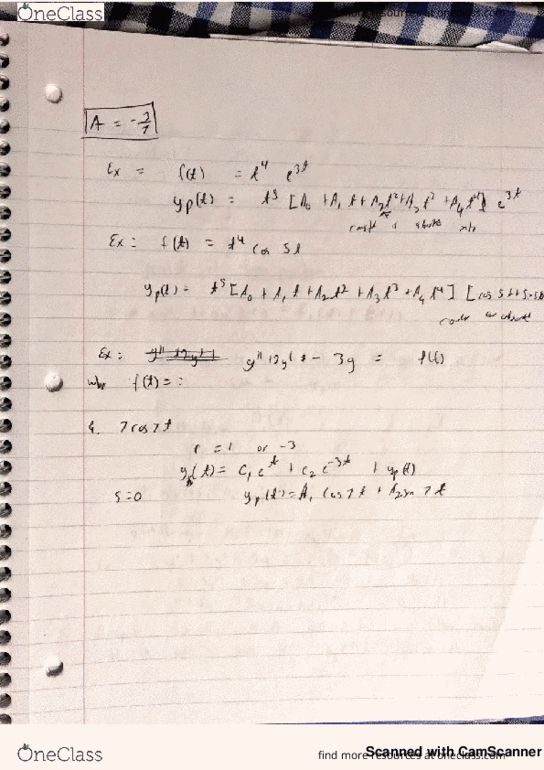 OneClass
A = -3/7
Ex = f(t) = t⁴ e^{3t}
yp(t) = t^s [A₀ + A₁ t + A₂t² + A₃ t³ + A₄ t⁴] e^{3t}
Ex: f(t) = t⁴ cos 5t
yp(t) = t^s [A₀ + A₁ t + A₂ t² + A₃ t³ + A₄ t⁴] [cos 5t +
Ex: y'' + 2y' - 3y = f(t)
f(t) = :
7 cos 7t
r = 1 or -3
(t) = C₁ e^t + C₂ e^{-3t} + yp(t)
S=0 yp(t) = A₁ cos 7t + A₂ sin 7t
OneClass
find more resources at oneclass.com
Scanned with CamScanner